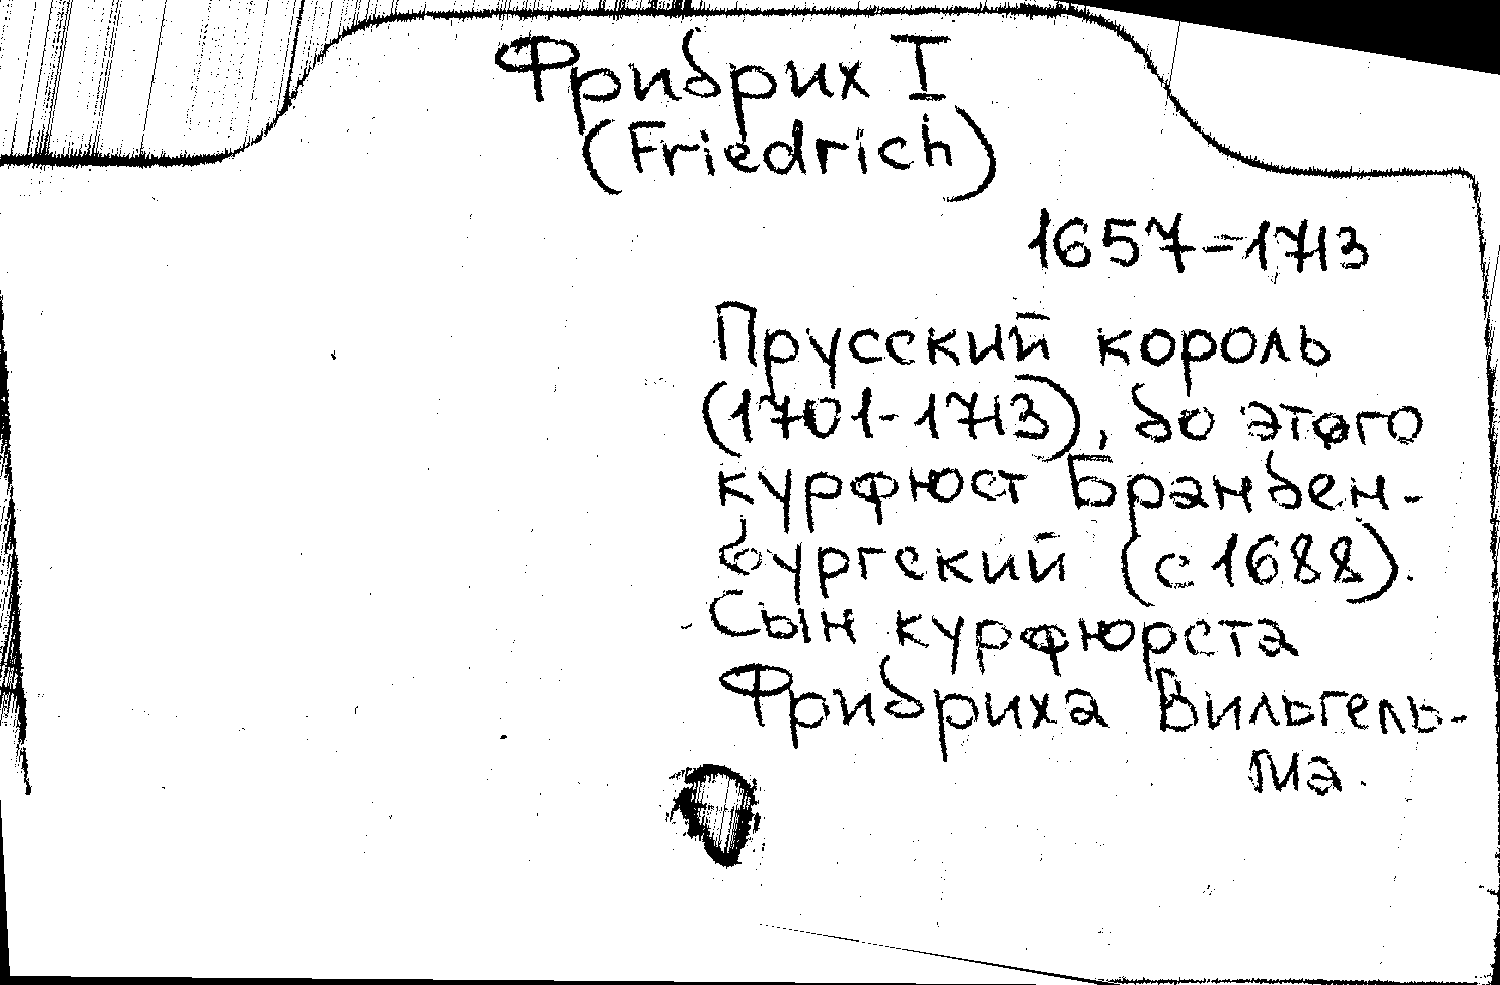 Фридрих I
(Friedrich)
1657-1713
Прусский король
(1701-1713), до этого
курфюст Бранден-
бургский (с 1688).
Сын курфюрста
Фридриха Вильгель-
ма.